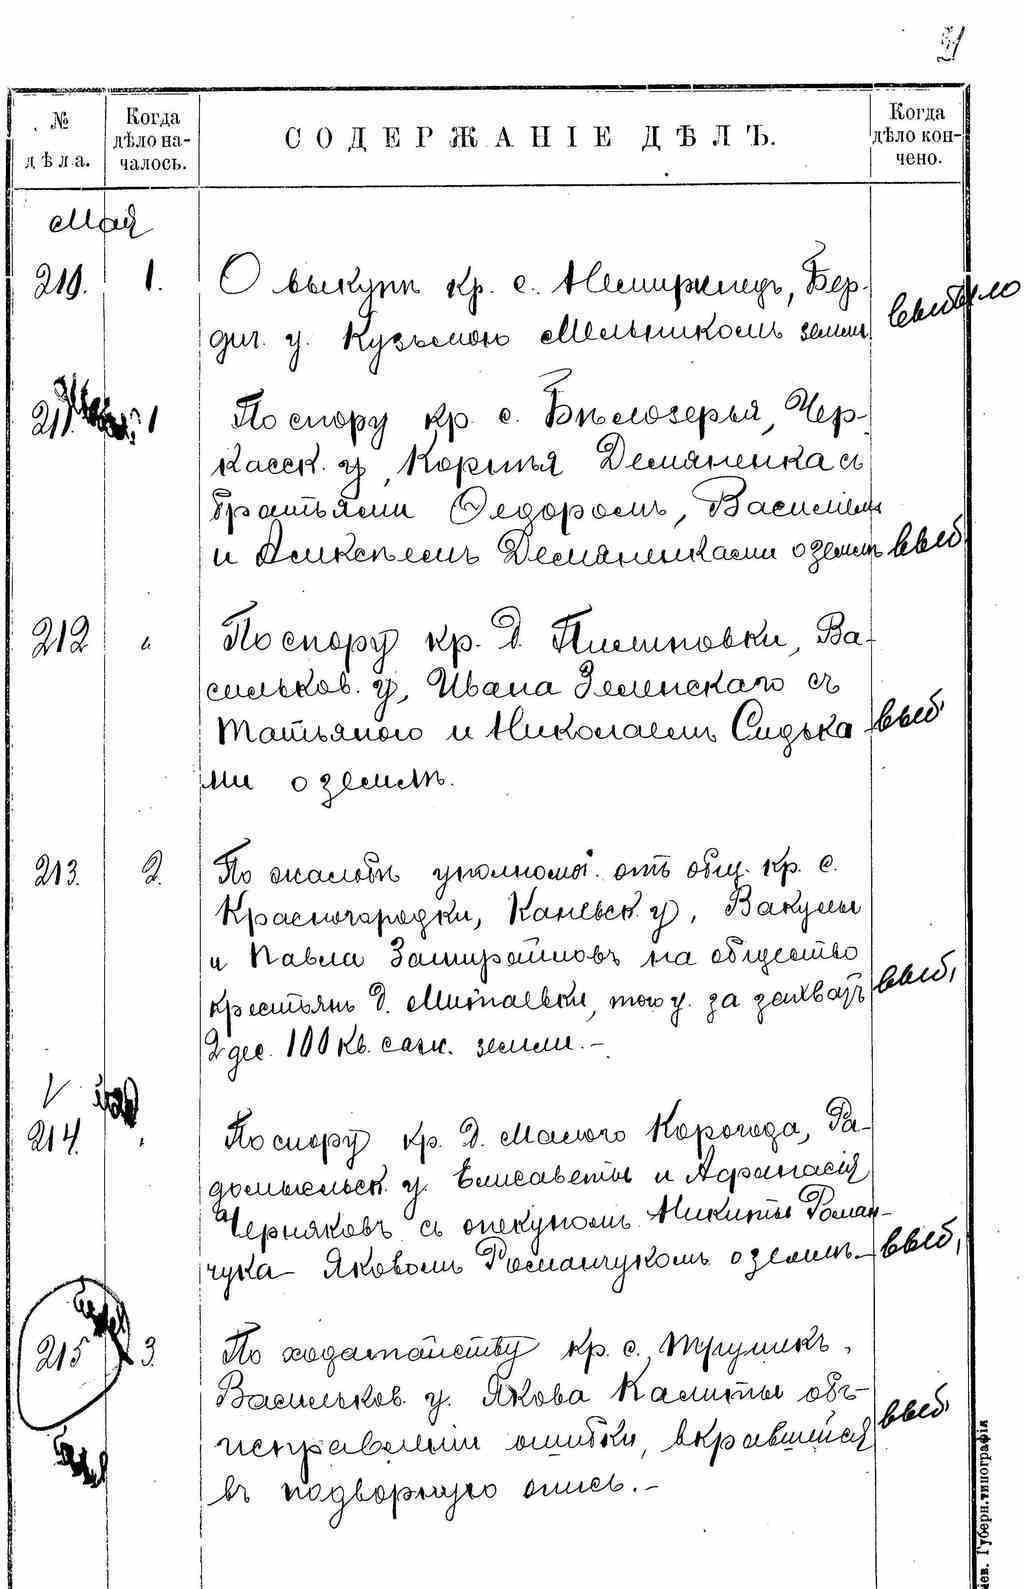 31
№ дѣла.
Когда дѣло началось.
СОДЕРЖАНІЕ ДѢЛЪ.
Когда дѣло кончено.
Мая
210. 1. О выкупѣ кр. с. Немиринецъ, Бер-
дич. у. Кузьмою Мельникомъ земли выбыло
211. 1 По спору кр. с. Бѣлозерья, Чер-
касск. у, Корнѣя Демяненка съ
братьями Ѳедоромъ, Василіемъ
и Алексѣемъ Демяненками о землѣ выб.
212 " По спору кр. д. Пилиповки, Ва-
сильков. у, Ивана Зеленскаго съ
Татьяною и Николаемъ Сидька выб.
ми о землѣ.
213. 2. По жалобѣ уполномоч. отъ общ. кр. с.
Красногородки, Каневск. у, Вакулы
и Павла на общество
крестьянъ д. Митаевки, того у. за захватъ выб.
2 дес. 100 кв. саж. земли.-
V
214. " По спору кр. д. Малого Корогода, Ра-
домысльск. у. Елисаветы и Афанасія
Черняковъ съ опекуномъ Никиты Роман-
чука Яковомъ Романчукомъ о землѣ.- выб.
215 3. По ходатайству кр. с.
Васильков. у. Якова Калиты объ
исправленіи ошибки, вкравшейся выб.
въ подворную опись.-
іев. Губерн. типографія